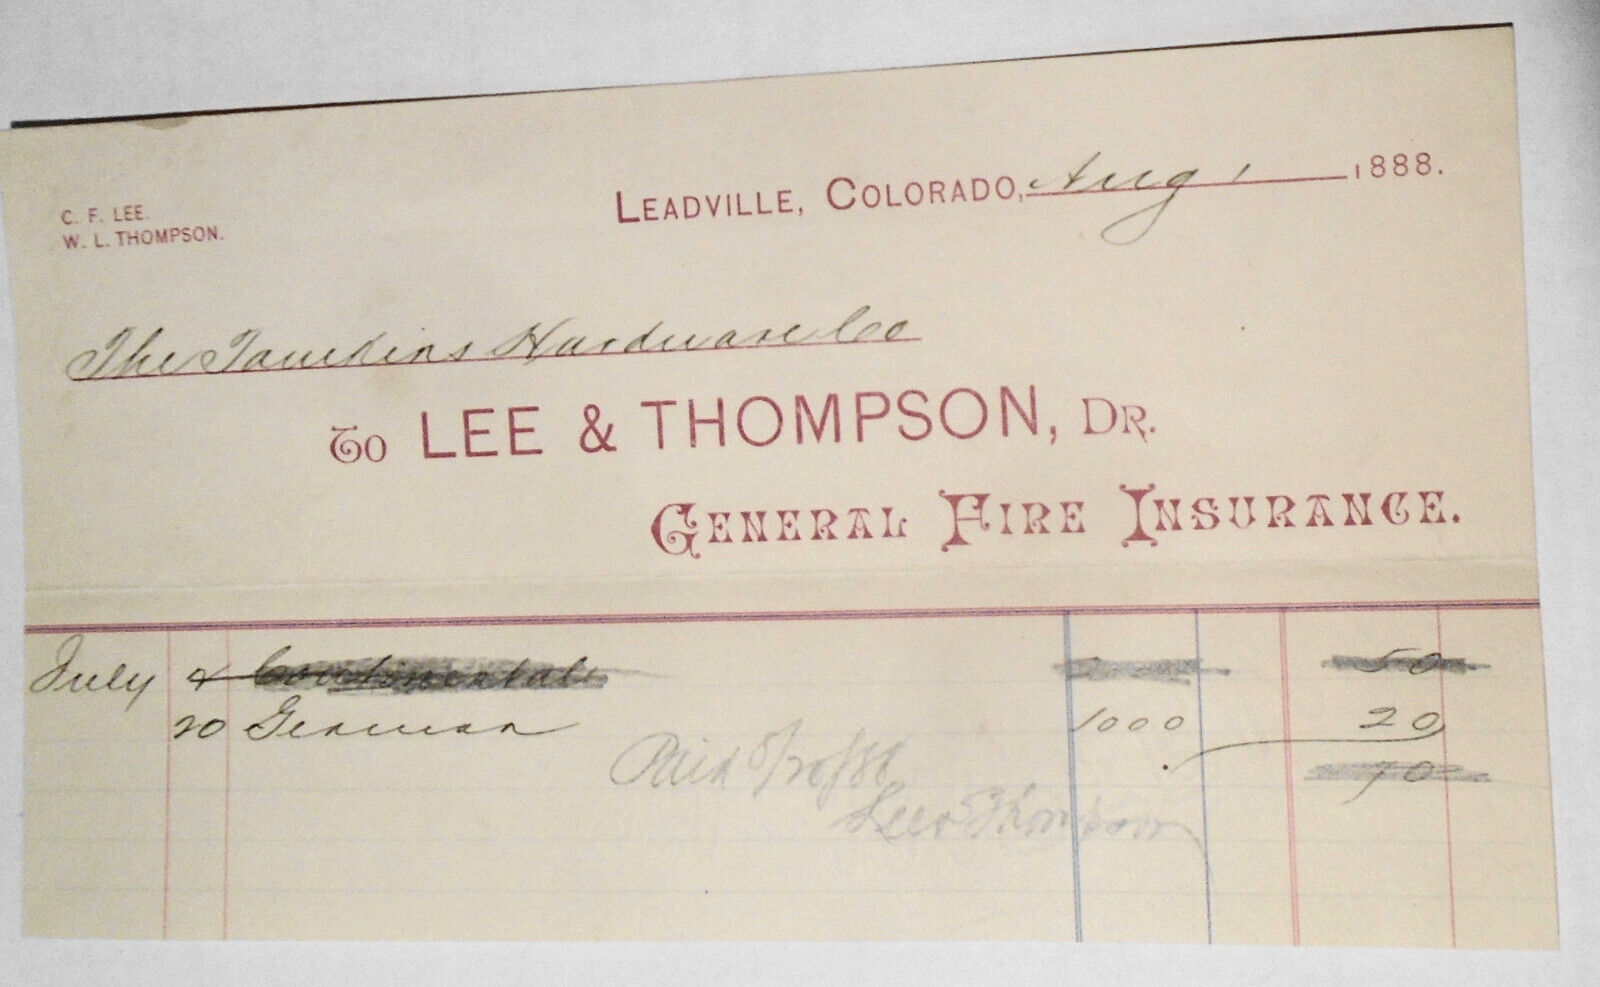 C. F. LEE.
W. L. THOMPSON.
LEADVILLE, COLORADO, Aug 1 1888.
The Tomkins Hardware Co
To LEE & THOMPSON, DR.
GENERAL FIRE INSURANCE.
July Continental 50
20 German 1000 20
70
Paid 8/20/88
Lee & Thompson